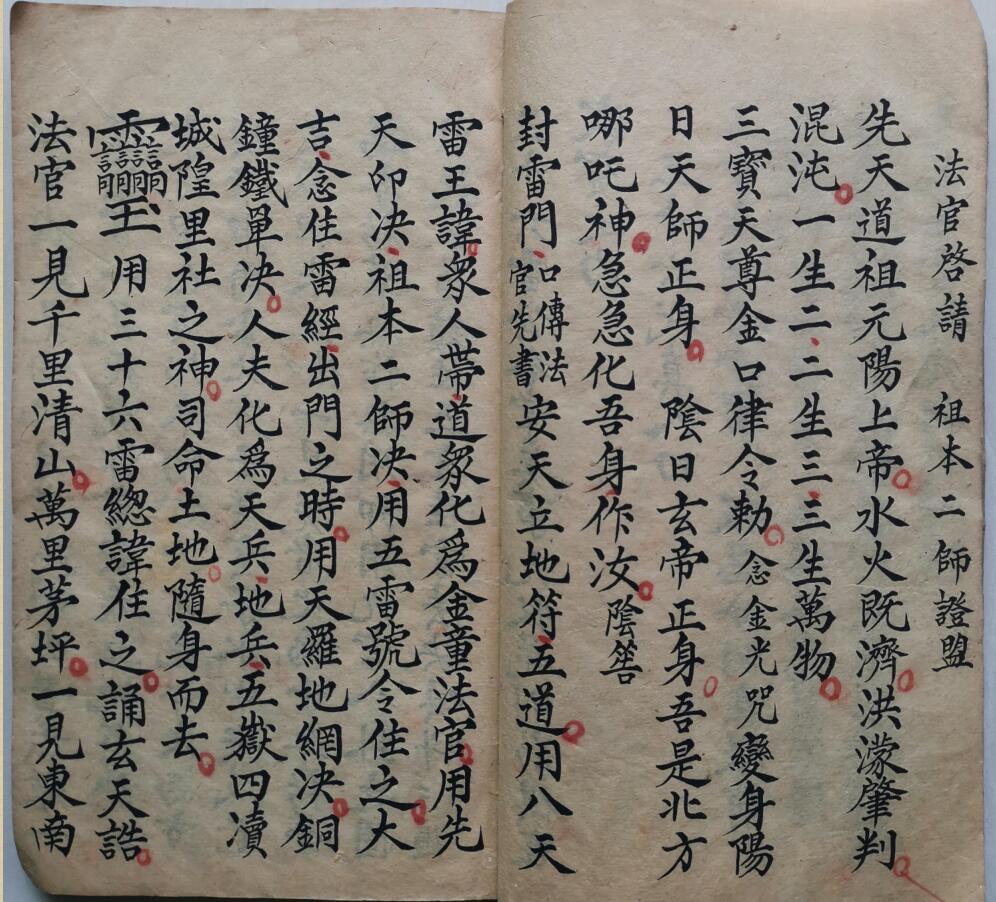 法官啓請　祖本二師證盟
先天道祖元陽上帝。水火既濟。洪濛肇判。
混沌。一生二、二生三、三生萬物。
三寶天尊金口律令勅。念金光咒變身陽
日天師正身。陰日玄帝正身。吾是北方
哪吒神。急急化吾身、作汝。陰筶
封雷門、口傳法官先書安天立地符、五道。用八天
雷王諱。衆人帶、道衆化爲金童法官。用先
天印决、祖本二師决、用五雷號令住之。大
吉、念住雷經、出門之時。用天羅地網决。銅
鐘鐵單决。人夫化爲天兵、地兵、五嶽四瀆
城隍里社之神。司命土地。隨身而去。
王用三十六雷總諱住之。誦玄天誥。
法官一見千里清山。萬里茅坪。一見東南